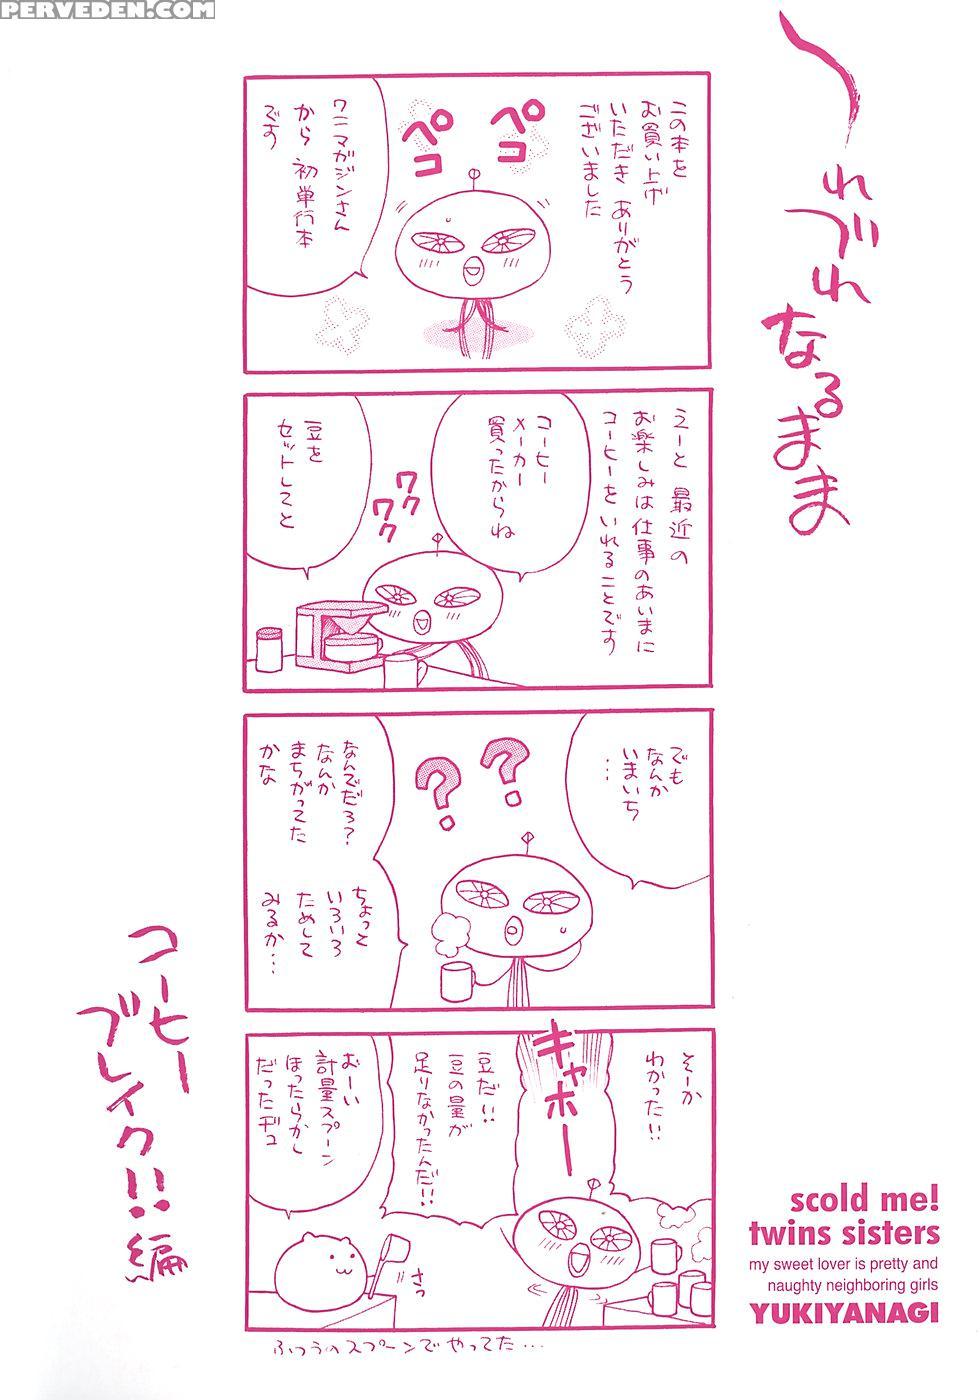 PERVEDEN.COM
〜れづれ
なるまま
コーヒー
ブレイク!!編
この本を
お買い上げ
いただき ありがとう
ございました
ペコ
ペコ
ワニマガジンさん
から 初単行本
です
えーと 最近の
お楽しみは仕事のあいまに
コーヒーをいれることです
コーヒー
メーカー
買ったからね
ワク
ワク
豆を
セットしてと
でも
なんか
いまいち
…
?
?
なんでだろ?
なんか
まちがってた
かな
ちょっと
いろいろ
ためして
みるか…
そーか
わかった!!
キャホー
豆だ!!
豆の量が
足りなかったんだ!!
おーい
計量スプーン
ほったらかし
だったヂュ
さっ
ふつうのスプーンでやってた…
scold me!
twins sisters
my sweet lover is pretty and
naughty neighboring girls
YUKIYANAGI